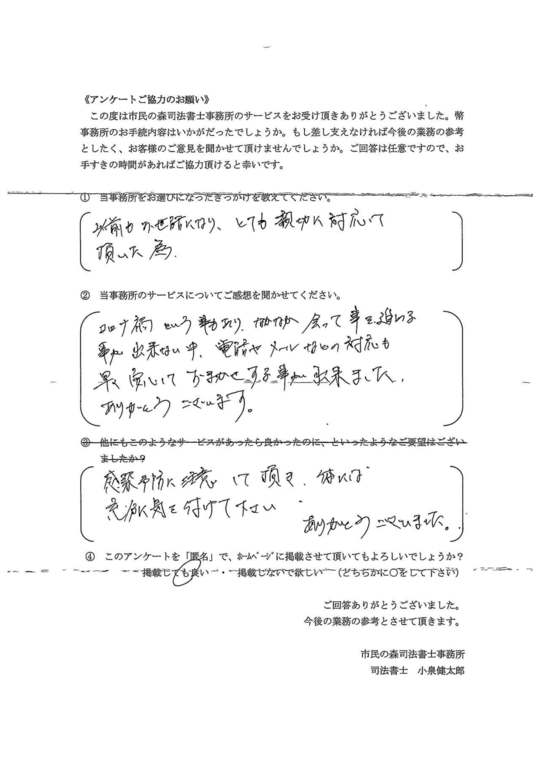 《アンケートご協力のお願い》
この度は市民の森司法書士事務所のサービスをお受け頂きありがとうございました。幣
事務所のお手続内容はいかがだったでしょうか。もし差し支えなければ今後の業務の参考
としたく、お客様のご意見を聞かせて頂けませんでしょうか。ご回答は任意ですので、お
手すきの時間があればご協力頂けると幸いです。
① 当事務所をお選びになったきっかけを教えてください。
以前もお世話になり、とても親切に対応して
頂いた為。
② 当事務所のサービスについてご感想を聞かせてください。
コロナ禍という事もあり、なかなか会って事を進める
事が出来ない中、電話やメールなどの対応も
早く安心しておまかせする事が出来ました。
ありがとうございます。
③ 他にもこのようなサービスがあったら良かったのに、といったようなご要望はござい
ましたか？
感染予防に注意して頂き、体には
充分に気を付けて下さい
ありがとうございました。
④ このアンケートを「匿名」で、ホームページに掲載させて頂いてもよろしいでしょうか？
掲載しても良い ・ 掲載しないで欲しい （どちらかに〇をして下さい）
ご回答ありがとうございました。
今後の業務の参考とさせて頂きます。
市民の森司法書士事務所
司法書士 小泉健太郎